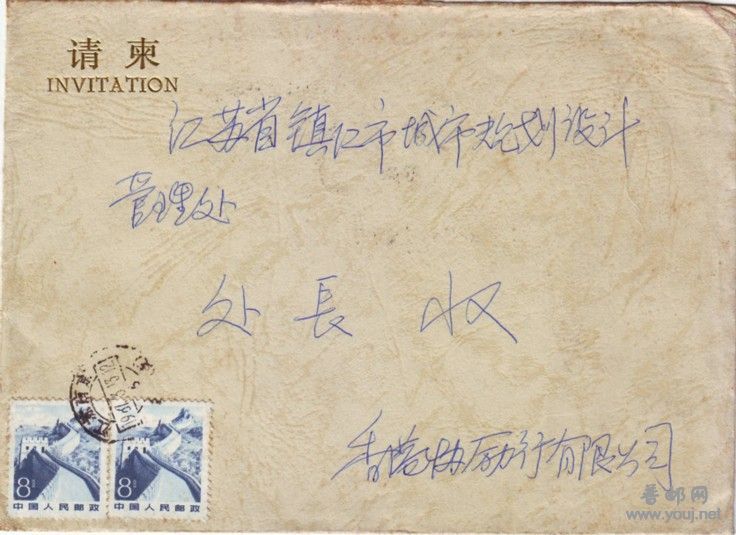 请柬
INVITATION
江苏省镇江市城市规划设计
管理处
处 長 收
香港协励行有限公司
8分 8分
中国人民邮政 中国人民邮政
普邮网
www.youj.net